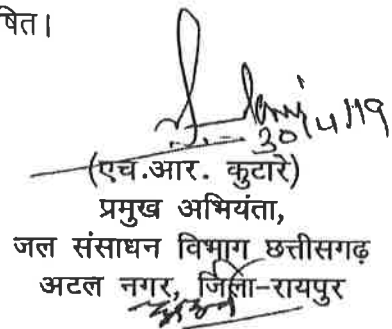 षित।
30/4/19
(एच.आर. कुटारे)
प्रमुख अभियंता,
जल संसाधन विभाग छत्तीसगढ़
अटल नगर, जिला-रायपुर